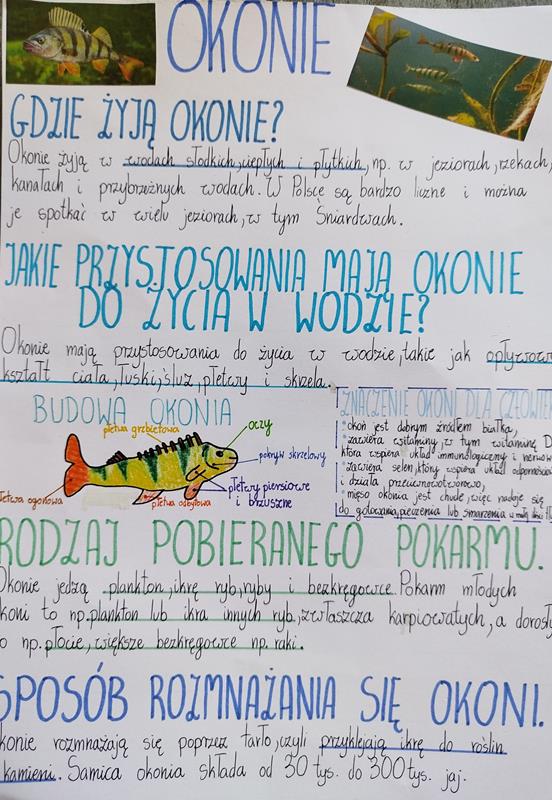 OKONIE
GDZIE ŻYJĄ OKONIE?
Okonie żyją w wodach słodkich, ciepłych i płytkich, np. w jeziorach, rzekach,
kanałach i przybrzeżnych wodach. W Polsce są bardzo liczne i można
je spotkać w wielu jeziorach, w tym Śniardwach.
JAKIE PRZYSTOSOWANIA MAJĄ OKONIE
DO ŻYCIA W WODZIE?
Okonie mają przystosowania do życia w wodzie, takie jak opływowy
kształt ciała, łuski, śluz, płetwy i skrzela.
BUDOWA OKONIA
płetwa grzbietowa
oczy
pokrywy skrzelowy
płetwy piersiowe
i brzuszne
płetwa odbytowa
płetwa ogonowa
ZNACZENIE OKONI DLA CZŁOWIE
okoń jest dobrym źródłem białka,
zawiera witaminy, w tym witaminę D
która wspiera układ immunologiczny i nerwow
zawiera selen, który wspiera układ odpornościo
i działa przeciwnowotworowo,
mięso okonia jest chude, więc nadaje się
do gotowania, pieczenia lub smażenia
RODZAJ POBIERANEGO POKARMU.
Okonie jedzą plankton, ikrę ryb, ryby i bezkręgowce. Pokarm młodych
okoni to np. plankton lub ikra innych ryb, zwłaszcza karpiowatych, a dorosły
o np. płocie, większe bezkręgowce np. raki.
SPOSÓB ROZMNAŻANIA SIĘ OKONI.
konie rozmnażają się poprzez tarło, czyli przyklejają ikrę do roślin
kamieni. Samica okonia składa od 30 tys. do 300 tys. jaj.